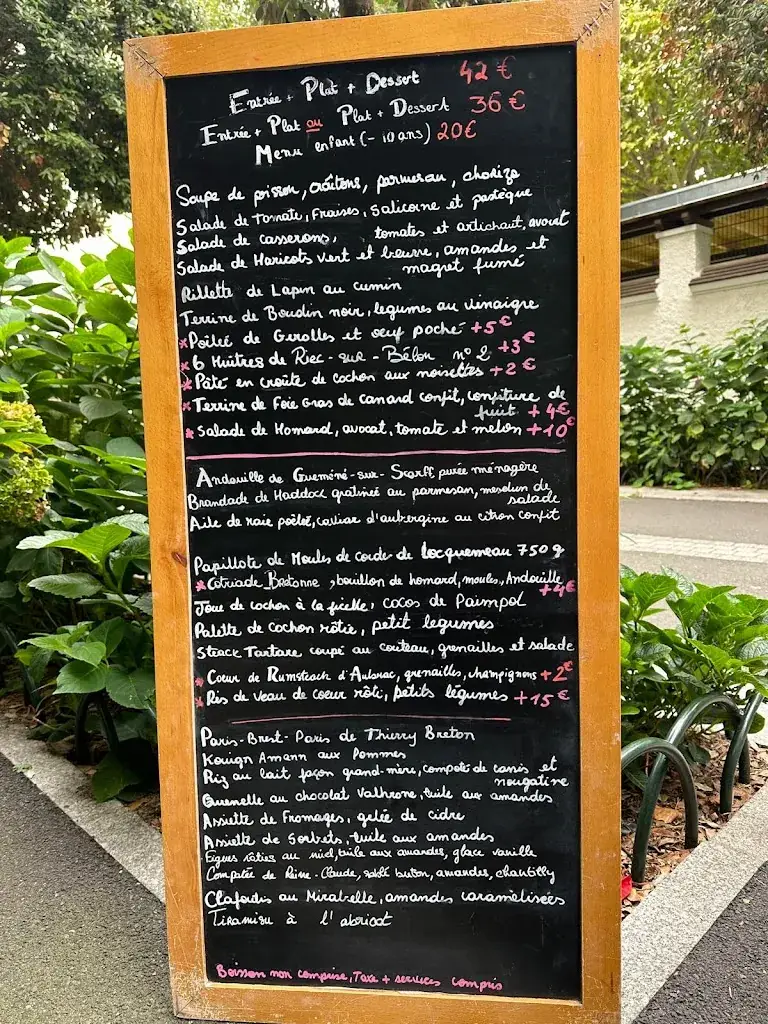 Entrée + Plat + Dessert 42€
Entrée + Plat ou Plat + Dessert 36€
Menu enfant (- 10 ans) 20€
Soupe de poisson, croûtons, parmesan, chorizo
Salade de Tomate, Fraises, Salicorne et pastèque
Salade de casserons, tomates et artichaut, avocat
Salade de Haricots vert et beurre, amandes et
magret fumé
Rillette de Lapin au cumin
Terrine de Boudin noir, legumes au vinaigre
*Poilée de Girolles et oeuf poché +5€
*6 Huîtres de Riec-sur-Bélon n°2 +3€
*Pâté en croûte de cochon aux noisettes +2€
*Terrine de Foie Gras de canard confit, confiture de
fruit +4€
*Salade de Homard, avocat, tomate et melon +10€
Andouille de Guemené-sur-Scorff, purée ménagère
Brandade de Haddock gratinée au parmesan, mesclun de
salade
Aile de raie poêlée, caviar d'aubergine au citron confit
Papillote de Moules de corde de Locquemeau 750g
*Cotriade Bretonne, bouillon de homard, moules, Andouille
+4€
Joue de cochon à la ficelle, cocos de Paimpol
Palette de cochon rôtie, petit legumes
Steack Tartare coupé au couteau, grenailles et salade
*Coeur de Rumsteack d'Aubrac, grenailles, champignons +2€
*Ris de veau de coeur rôti, petits légumes +15€
Paris-Brest-Paris de Thierry Breton
Kouign Amann aux Pommes
Riz au lait façon grand-mère, compote de cassis et
nougatine
Quenelle au chocolat Valhrona, tuile aux amandes
Assiette de Fromages, gelée de cidre
Assiette de Sorbets, tuile aux amandes
Figues rôties au miel, tuile aux amandes, glace vanille
Compotée de Reine-Claude, sablé breton, amandes, chantilly
Clafoutis au Mirabelle, amandes caramelisées
Tiramisu à l'abricot
Boisson non comprise, Taxe + services compris